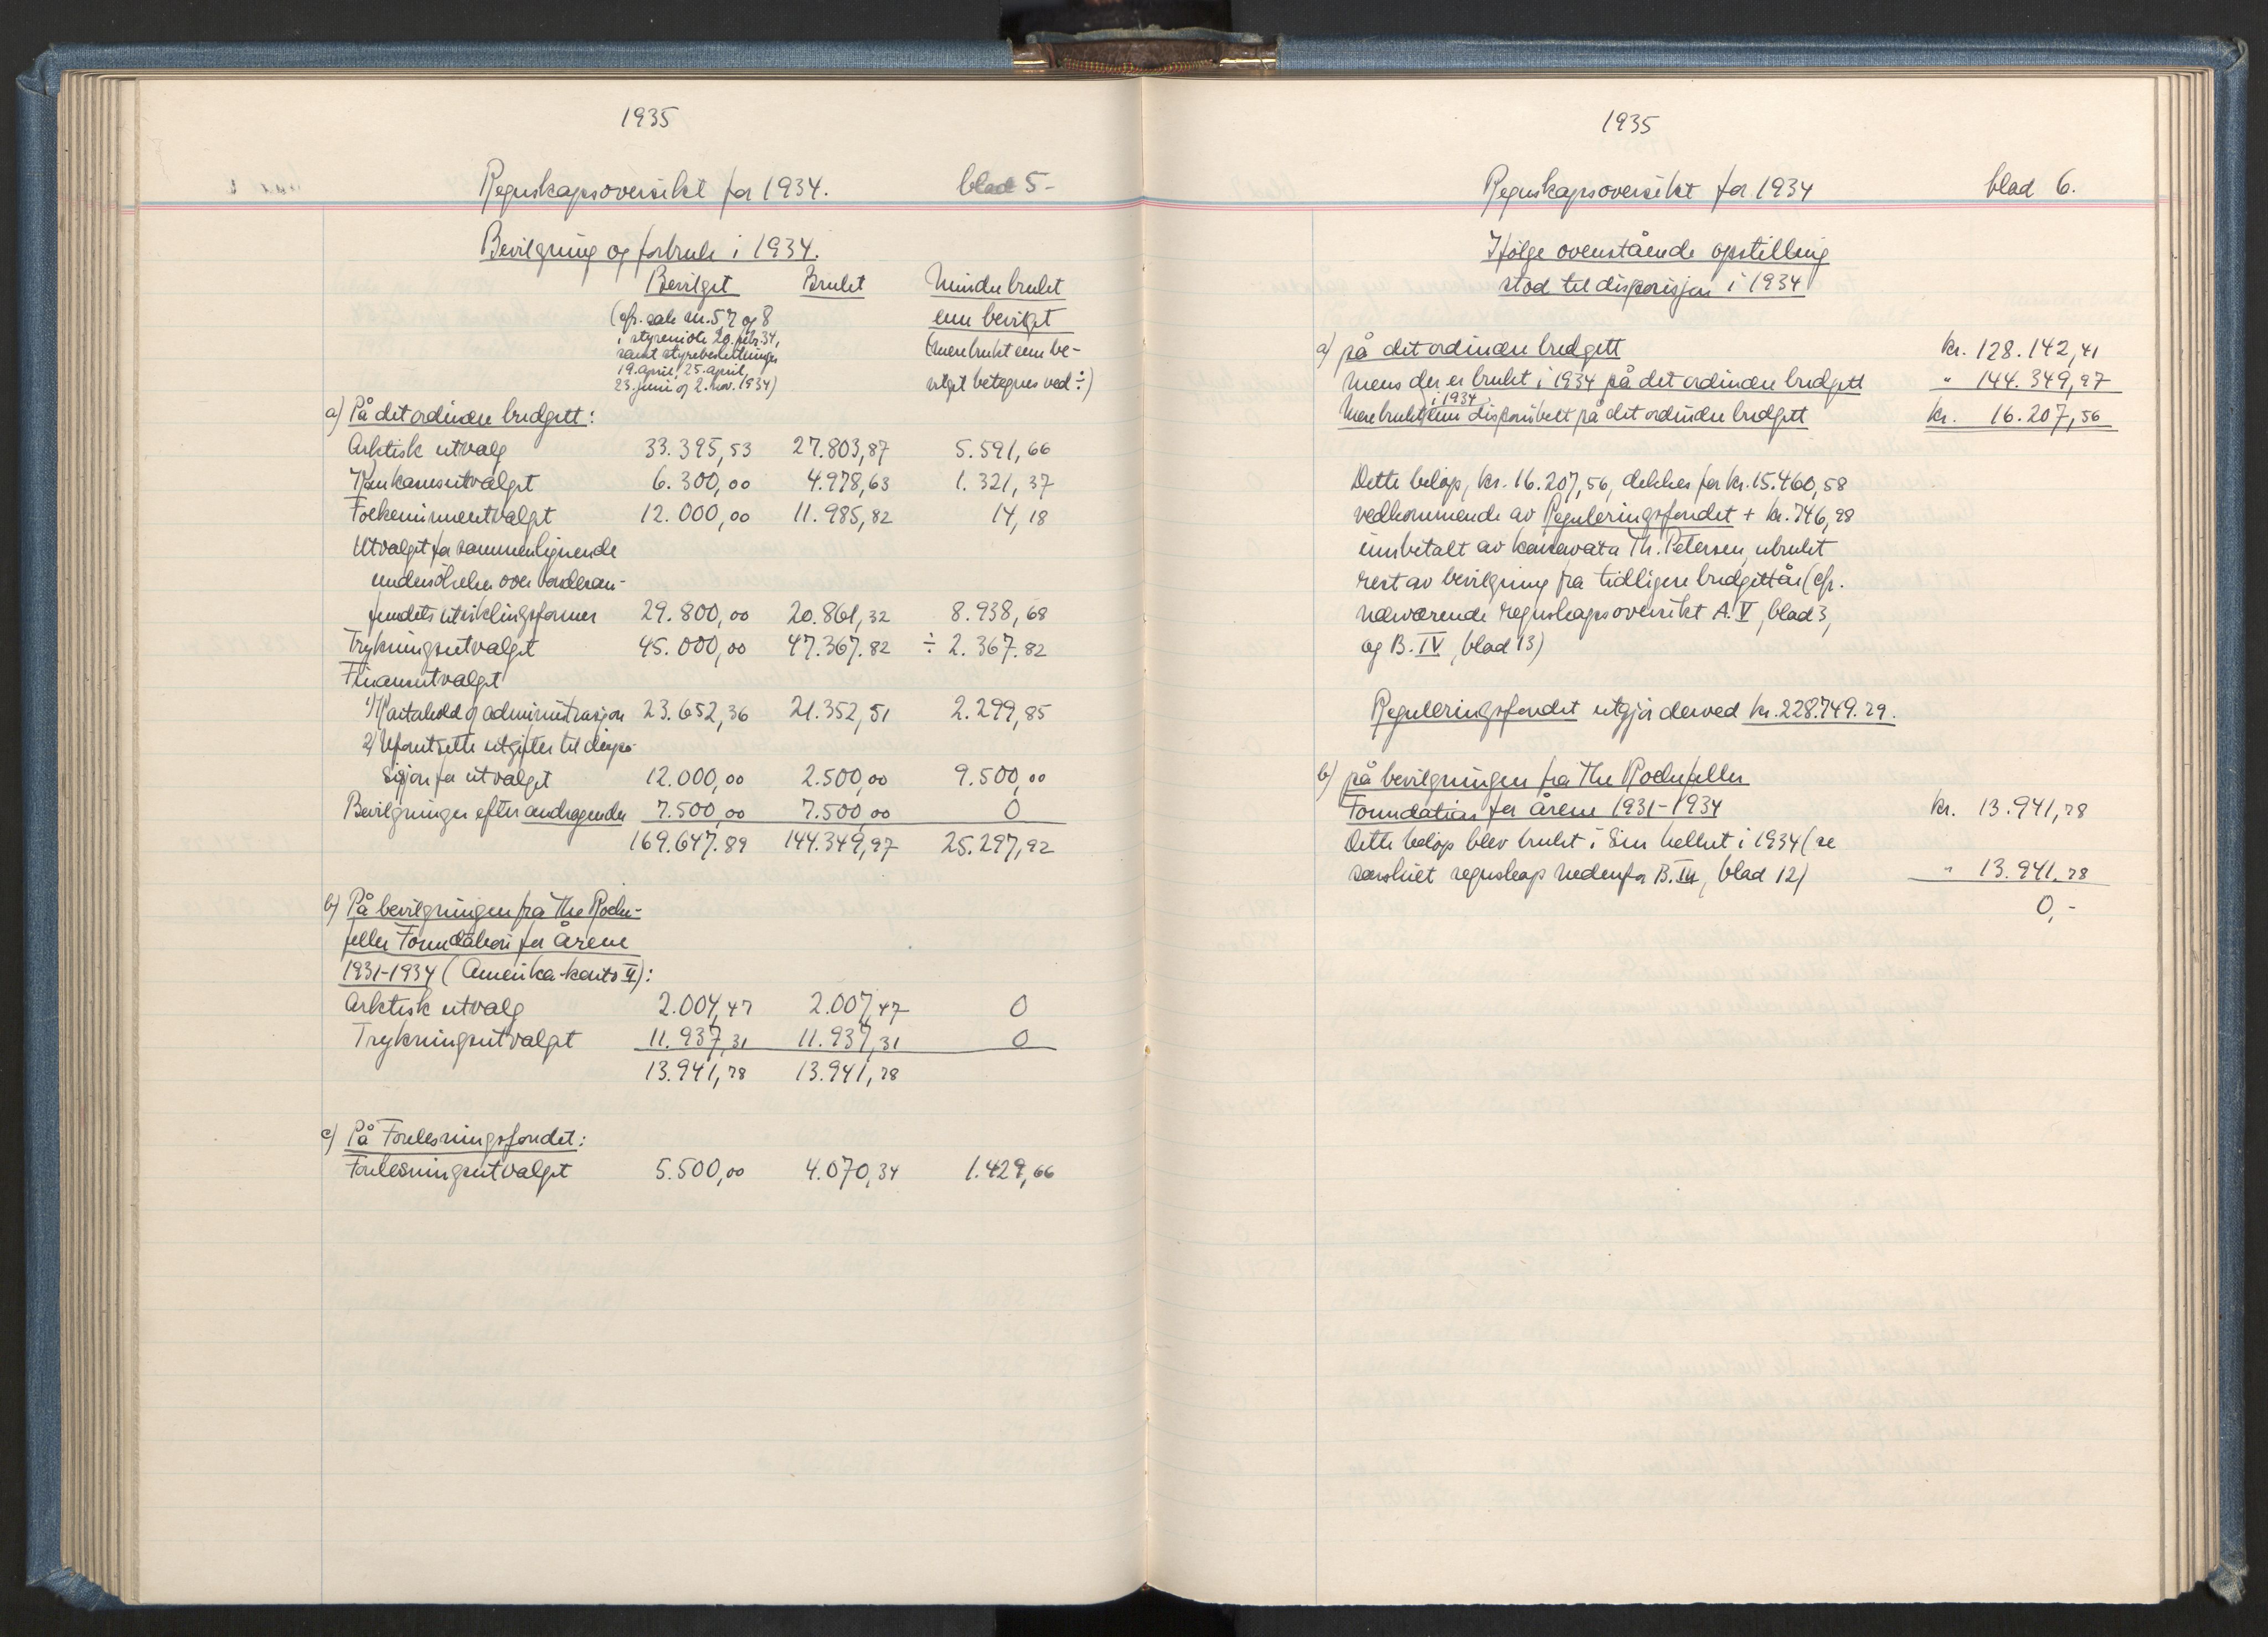 1935
Regnskapsoversikt for 1934. blad 5-
Bevilgning og forbruk i 1934.
Bevilget Brukt Mindre brukt
(cfr. sak nr. 5, 7 og 8 enn bevilget
i styremöte 20. febr. 34, (mere brukt enn be-
samt styrebeslutninger vilget betegnes ved ÷)
19. april, 25. april,
23. juni og 2. nov. 1934)
a) På det ordinære budgett:
Arktisk utvalg 33.395,53 27.803,87 5.591,66
Kaukasusutvalget 6.300,00 4.978,63 1.321,37
Folkeminneutvalget 12.000,00 11.985,82 14,18
Utvalget for sammenlignende
undersökelser over bondesam-
fundets utviklingsformer 29.800,00 20.861,32 8.938,68
Trykningsutvalget 45.000,00 47.367.82 ÷ 2.367.82
Finansutvalget
1) Kartahold og administrasjon 23.652,36 21.352,51 2.299,85
2) Uforutsette utgifter til dispo-
sisjon for utvalget 12.000,00 2.500,00 9.500,00
Bevilgninger efter andragender 7.500,00 7.500,00 0
169.647.89 144.349,97 25.297,92
b) På bevilgningen fra The Rocke-
feller Foundation for årene
1931-1934 (Amerika-konto II):
Arktisk utvalg 2.004,47 2.004,47 0
Trykningsutvalget 11.937,31 11.937,31 0
13.941,78 13.941,78
c) På Forelesningsfondet:
Forelesningsutvalget 5.500,00 4.070,34 1.429,66
1935
Regnskapsoversikt for 1934 blad 6.
Ifölge ovenstående opstilling
stod til disposisjon i 1934
a) på det ordinære budgett kr. 128.142,41
mens der er brukt i 1934 på det ordinære budgett " 144.349,97
i 1934
Mere brukt enn disponibelt på det ordinære budgett kr. 16.207,56
Dette belöp, kr. 16.207,56, dekkes for kr. 15.460,58
vedkommende av Reguleringsfondet + kr. 746,98
innbetalt av konservator Th. Petersen, ubrukt
rest av bevilgning fra tidligere budgettår (cfr.
nærværende regnskapsoversikt A. V, blad 3,
og B. IV, blad 13)
Reguleringsfondet utgjör derved kr. 228.749.29.
b) på bevilgningen fra The Rockefeller
Foundation for årene 1931-1934 kr. 13.941,78
Dette belöp blev brukt i sin helhet i 1934 (se
særskilt regnskap nedenfor B. III, blad 12) " 13.941.78
0,-